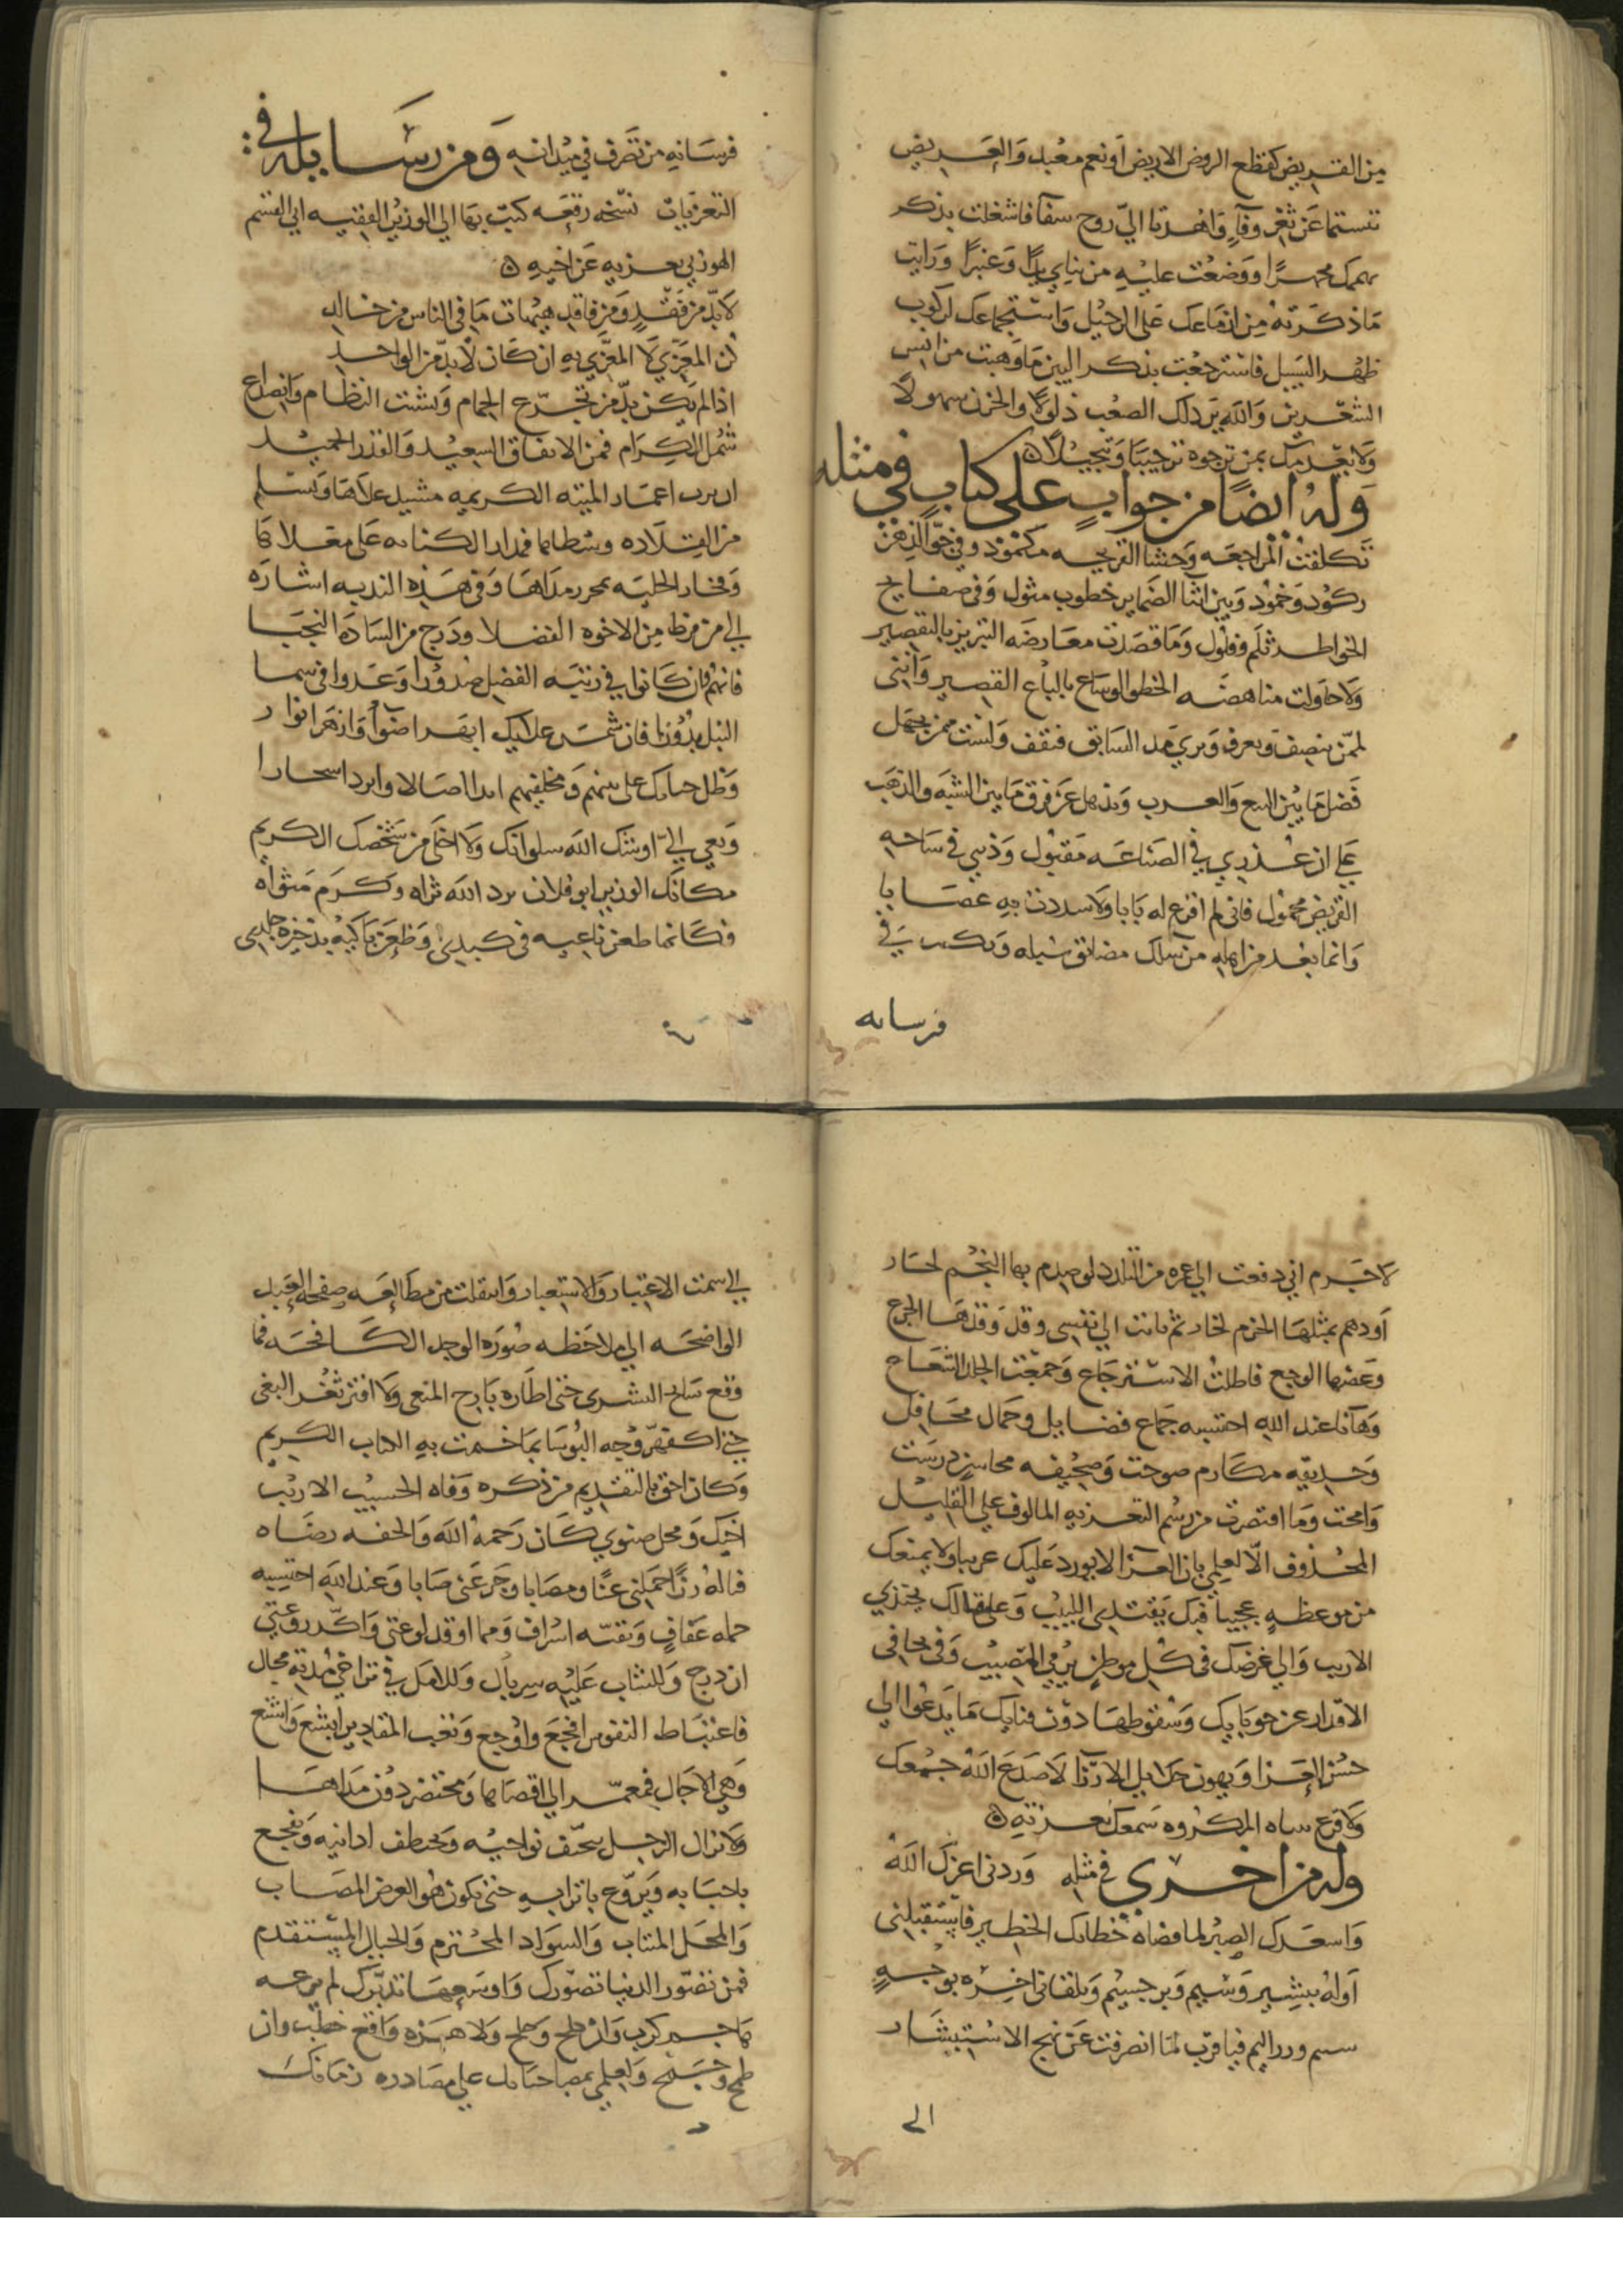 من القريض كقطع الروض الاريض او نعم معبد والغريض
تبسما عن ثغر وفاء واهدتا الي روح شفا فاشغلت بذكر
ووضعت عليه من ثنائي وعنبرا ورايت
ما ذكرته من ازماعك على الرحيل واستجماعك لركوب
ظهر السبيل فاسترجعت بذكر البين ما وهبت من انس
الشعرين والله يرد لك الصعب ذلولا والحزن سهولا
ولا بعد منك بمن ترجوه ترحيبا وتبجيلا
وله ايضا من جواب على كتاب في مثله
تكلفت المراجعه وحشا القريحه مكمود وفي جو الذهن
ركود وخمود وبين اثنا الضماير خطوب مثول وفي صفايح
الخواطر ثلم وفلول وما قصدت معارضه التبريز بالتقصير
ولا حاولت مناهضه الخطو الوساع بالباع القصير وانني
لممن ينصف ويعرف ويري مد السابق فيقف ولست ممن يجهل
فضل ما بين النبع والغرب ويذهل عن فرق ما بين الشبه والذهب
على ان عذري في الصناعه مقبول وذنبي في ساحه
القريض محمول فاني لم اقرع له بابا ولا سددت به عصابا
وانما يعد من اهله من سلك مضائق سبله في
فرسانه
فرسانه من تصرف في ميدانه ومن رسايله في
التعزيات نسخه رقعه كتب بها الي الوزير الفقيه ابي القسم
الهوزني يعزيه عن اخيه
لا بد من فقد ومن فاقد هيهات ما في الناس من خالد
كن المعزي لا المعزي به ان كان لا بد من الواحد
اذا لم يكن بد من تجرع الحمام وتشتت النظام وانصداع
شمل الكرام فمن الاتفاق السعيد والقدر الحميد
ان يرث اعمار البيته الكريمه مشيد علاها ويسلم
من القلاده وسطاها فمدار الكنانه على معلاها
وفخار الحلبه بمحرز مداها وفي هذه الندبه اشاره
الي من فرط من الاخوه الفضلا ودرج من الساده النجبا
فانهم وان كانوا في رتبه الفضل صدورا وغدوا في سما
النبل بدورا فان شمس علاك ابهر اضوا وازهر انوارا
وظل جنابك على بنيهم ومخلفيهم اندا اصالا وابرد اسحارا
ونعي الي اوشك الله سلوانك ولا اخلى من شخصك الكريم
مكانك الوزير ابو فلان برد الله ثراه وكرم مثواه
فكانما طعن ناعيه في كبدي وظعن باكيه بذخيره جلدي
لا جرم اني دفعت الي غمره من التلدد لو صدم بها النجم لحار
او دهم بمثلها الحزم لخار ثم ثابت الي نفسي وقد وقذها الجزع
وعضها الوجع فاطلت الاسترجاع وجمعت الجلد الشعاع
وها انا عند الله احتسبه جماع فضايل وجمال محافل
وحديقه مكارم صوحت وصحيفه محاسن درست
وامحت وما اقتصرت من رسم التعزيه المالوف علي القليل
المحذوف الا لعلمي بان العزا لا يورد عليك غريبا ولا يمنعك
من موعظه عجيبا فبك يقتدي اللبيب وعلى مثالك يحتذي
الاريب والي غرضك في كل موطن يرمي المصيب وفي تجافي
الاقدار عن حوبايك وسقوطها دون فنايك ما يدعوا الي
حسن العزا ويهون جلايل الارزا لا صدع الله جمعك
ولا قرع بنباه المكروه سمعك بعزته
وله من اخري في مثله وردني اعزك الله
واسعدك الصبر لما قضاه خطابك الخطير فاستقبلني
اوله ببشير وسيم وبر جسيم وتلقاني اخره بوجه
ورد اليم فيا قرب لما انصرفت عن نهج الاستبشار
الى
الي سمت الاعتبار والاستعبار وانتقلت من مطالعه صفحه الجذل
الواضحه الي ملاحظه صوره الوجد الكافحه فما
وقع سانح البشرى حتى اطاره بارح المنعى ولا افتر ثغر البغى
حتى اكفهر وجه البوسا بما ختمت به الكتاب الكريم
وكان احق بالتقديم من ذكره وفاه الحسيب الاريب
اخيك ومحل صنوي كان رحمه الله والحفه رضاه
فياله رزا حملني عبئا ومصابا وجرعني صابا وعند الله احتسبه
جمله عفاف وبقيه اشراف ومما اوقد لوعتي واكد روعتي
ان درج وللشباب عليه سربال وللامل في تراخي مدته مجال
فاعتباط النفوس افجع واوجع وتغب المقادير ابشع واشنع
وهي الاجال فمعمر الي اقصاها ومختصر دون مداها
ولا تزال الرجل تتحيف نواحيه وتختطف ادانيه وتفجع
باحبابه وتروع باترابه حتى يكون هو الغرض المصاب
والمحل المنتاب والسواد المخترم والخيال المستقدم
فمن تصور الدنيا تصورك واوسعها تدبرك لم يرعه
هاجم كرب وان طح وجلح ولا هزه واقع خطب وان
طمح وجمح ولعلمي بمصاحبتك على مصادره زمانك